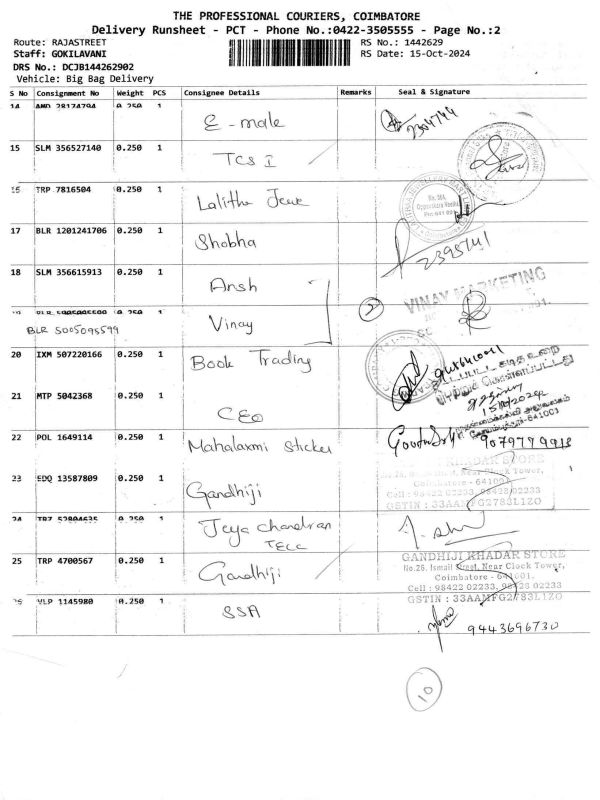 THE PROFESSIONAL COURIERS, COIMBATORE
Delivery Runsheet - PCT - Phone No.:0422-3505555 - Page No.:2
Route: RAJASTREET
RS No.: 1442629
Staff: GOKILAVANI
RS Date: 15-Oct-2024
DRS No.: DCJB144262902
Vehicle: Big Bag Delivery
S No Consignment No Weight PCS Consignee Details Remarks Seal & Signature
14 0.250 1 E-male
15 SLM 356527140 0.250 1 TCS I
TRP 7816504 0.250 1 Lalitha
17 BLR 1201241706 0.250 1 Shobha
2395141
18 SLM 356615913 0.250 1 Ansh
VINAY MARKETING
0.250 1 Vinay
2
BLR 5005095599
20 IXM 507220166 0.250 1 Book Trading
21 MTP 5042368 0.250 1 CEO
641001
22 POL 1649114 0.250 1 Mahalaxmi Sticker
9079779918
23 EDQ 13587809 0.250 1 Gandhiji
KHADAR STORE
Clock Tower,
Coimbatore - 641001.
Cell : 98422 02233, 98428 02233
GSTIN : 33AAMFG2783L1ZO
24 0.250 1 Jeya Chandran
TECC
25 TRP 4700567 0.250 1 Gandhiji
GANDHIJI KHADAR STORE
No.26, Ismail Street, Near Clock Tower,
Coimbatore - 641001.
Cell : 98422 02233, 98428 02233
GSTIN : 33AAMFG2783L1ZO
VLP 1145980 0.250 1 SSA
9443696730
10